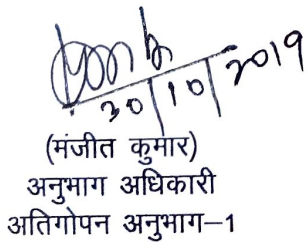 30/10/2019
(मंजीत कुमार)
अनुभाग अधिकारी
अतिगोपन अनुभाग–1